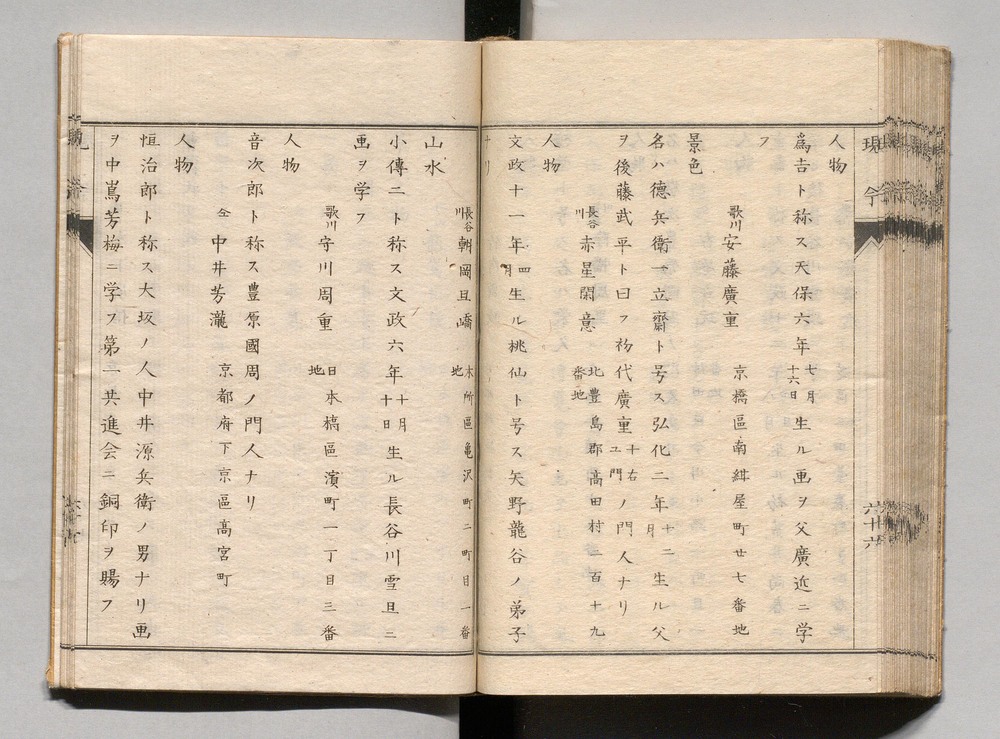 現今
人物
爲吉ト称ス天保六年七月十六日生ル画ヲ父廣近ニ学
フ
歌川 安藤廣重 京橋區南紺屋町廿七番地
景色
名ハ德兵衛一立齋ト号ス弘化二年十二月生ル父
ヲ後藤武平ト曰フ初代廣重十右ヱ門ノ門人ナリ
長谷川 赤星閑意 北豊島郡高田村一百十九番地
人物
文政十一年四月生ル桃仙ト号ス矢野龍谷ノ弟子
ナリ
長谷川 朝岡且嶠 本所區亀沢町二町目一番地
山水
小傳二ト称ス文政六年十月十日生ル長谷川雪旦ニ
画ヲ学フ
歌川 守川周重 日本橋區濱町一丁目三番地
人物
音次郎ト称ス豊原國周ノ門人ナリ
仝 中井芳瀧 京都府下京區高宮町
人物
恒治郎ト称ス大坂ノ人中井源兵衛ノ男ナリ画
ヲ中嶌芳梅ニ学フ第一共進会ニ銅印ヲ賜フ
六十六